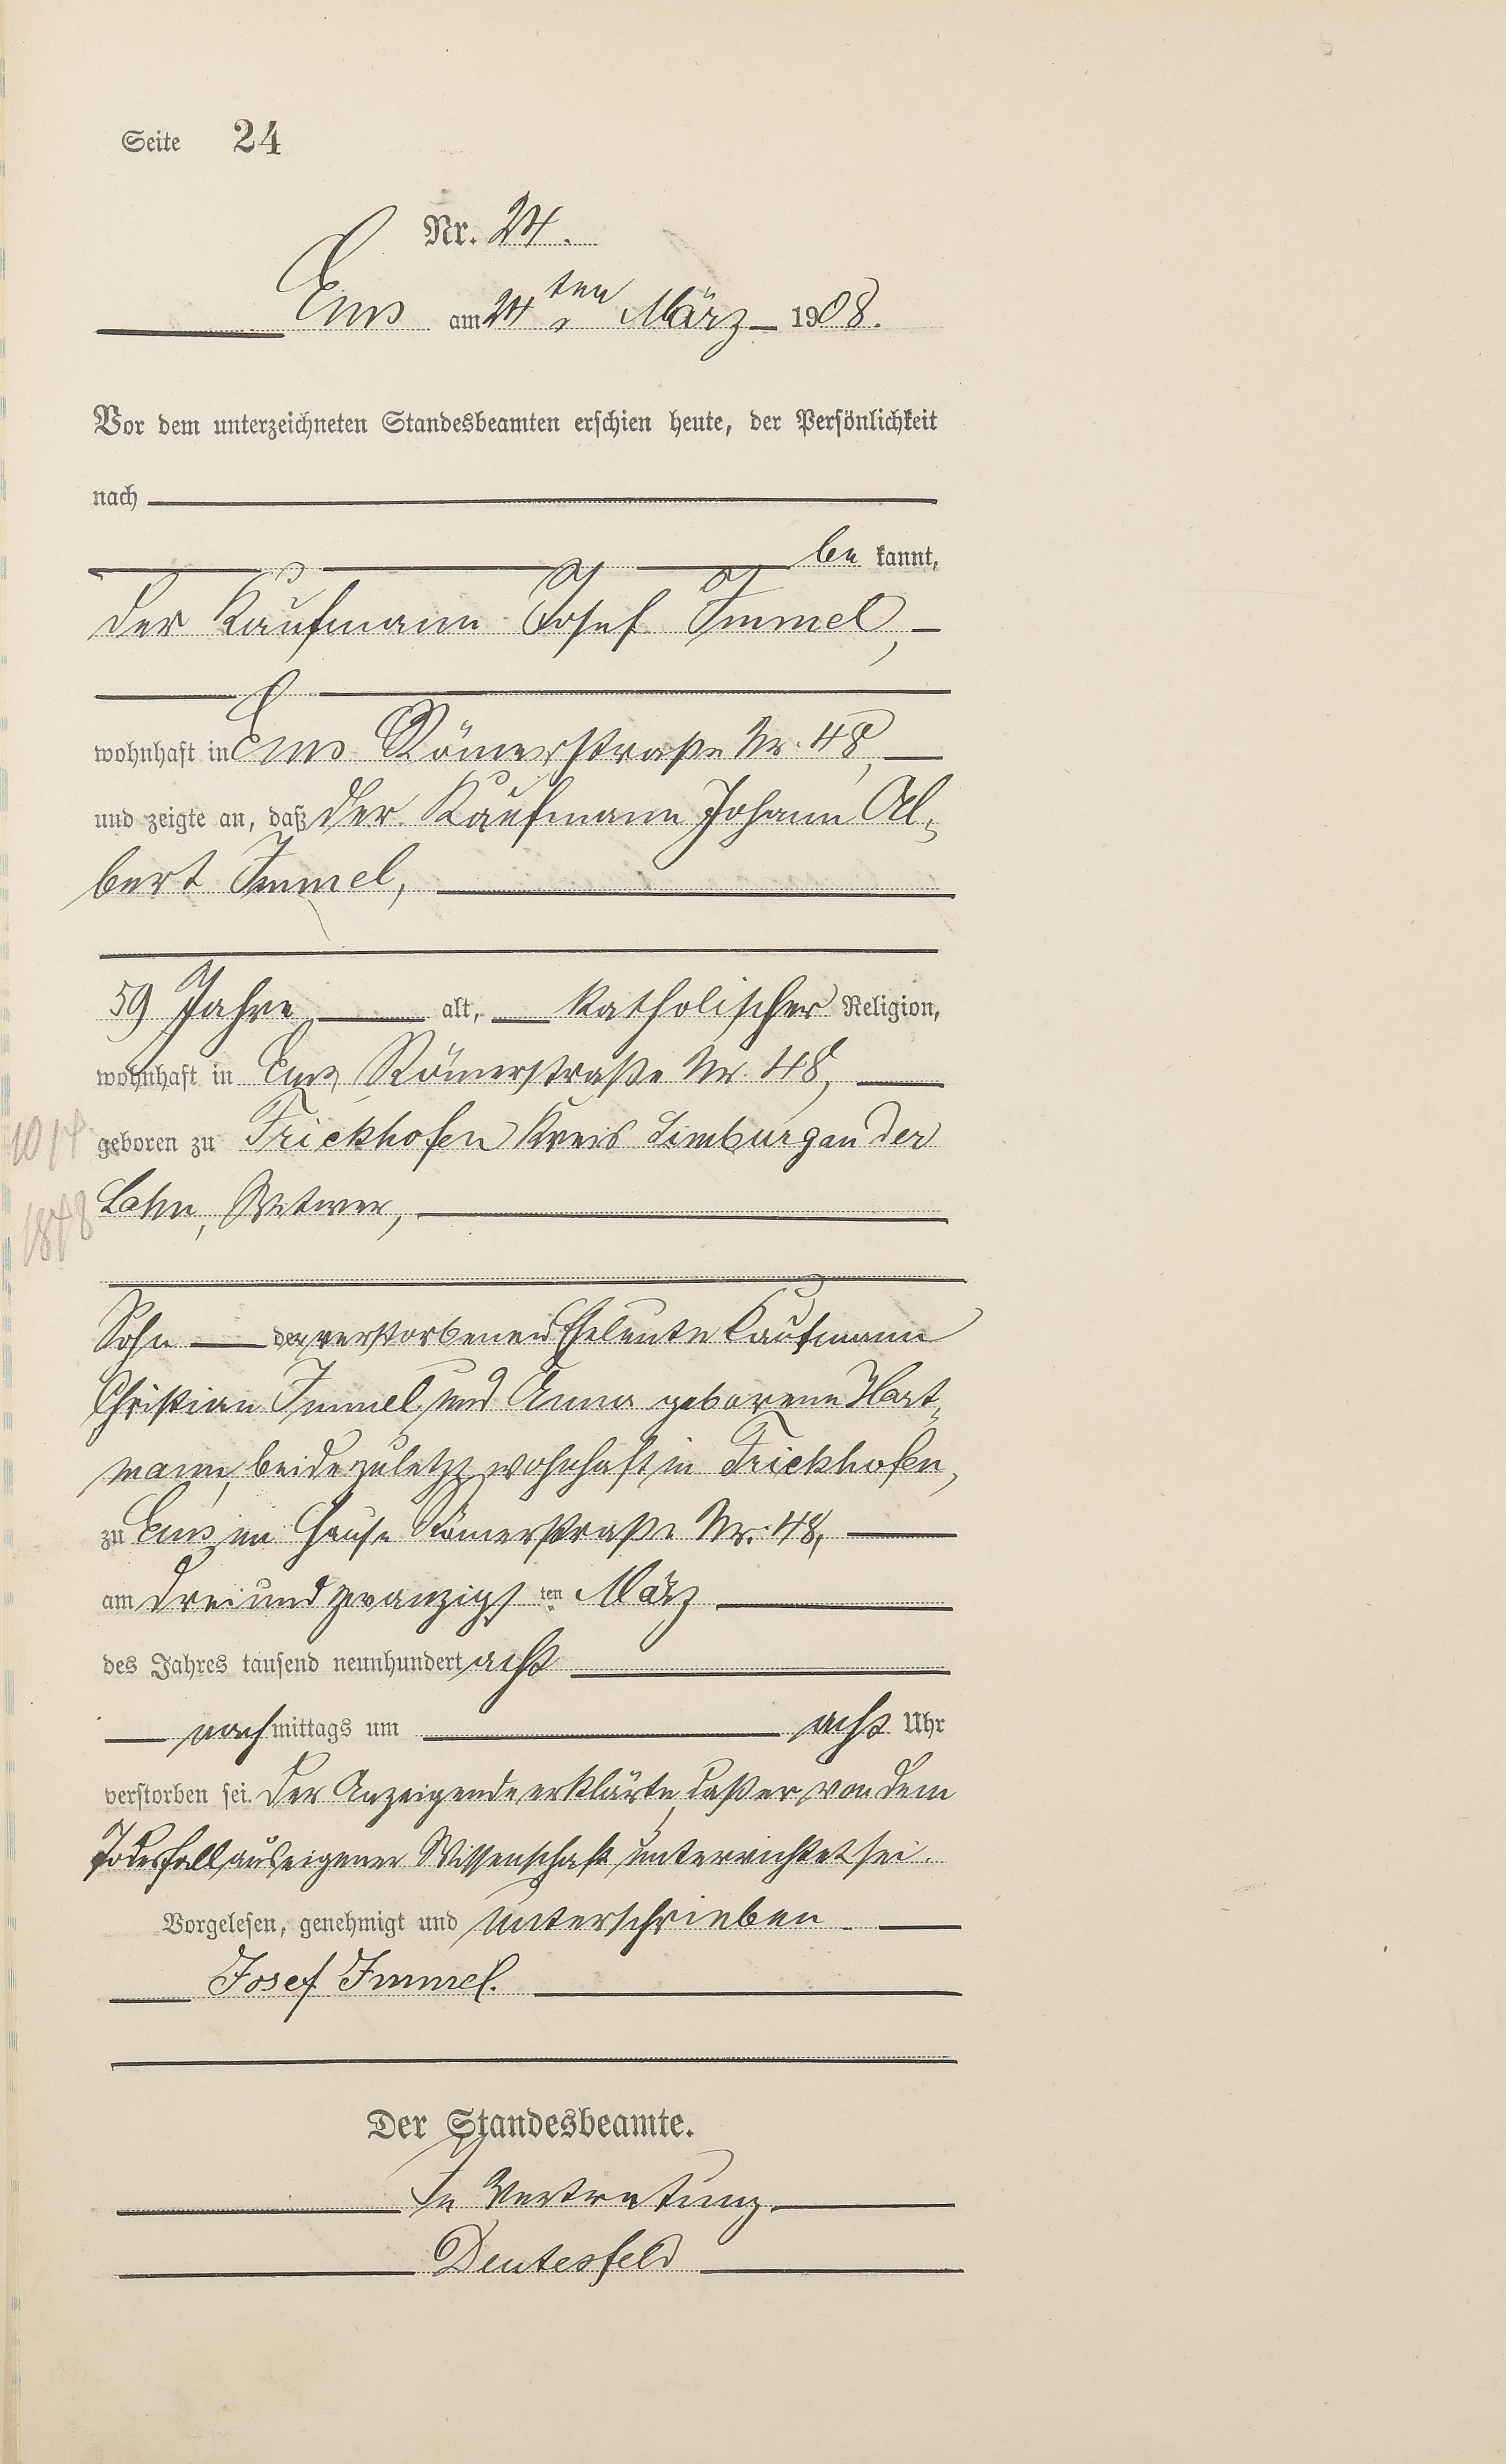 Seite 24
Nr. 24.
Ems am 24ten März 1908.
Vor dem unterzeichneten Standesbeamten erschien heute, der Persönlichkeit
nach
be kannt,
der Kaufmann Josef Immel,
wohnhaft in Ems Römerstraße Nr. 48,
und zeigte an, daß der Kaufmann Johann Al-
bert Immel,
59 Jahre alt, katholischer Religion,
wohnhaft in Ems, Römerstraße Nr. 48,
geboren zu Frickhofen Kreis Limburg an der
Lahn, Witwer,
1848
Sohn der verstorbenen Eheleute Kaufmann
Christian Immel und Anna geborene Hart-
mann, beide zuletzt wohnhaft in Frickhofen,
zu Ems, im Hause Römerstraße Nr. 48,
am dreiundzwanzigsten März
des Jahres tausend neunhundert acht
nachmittags um acht Uhr
verstorben sei. Der Anzeigende erklärte, daß er von dem
Todesfall aus eigener Wissenschaft unterrichtet sei.
Vorgelesen, genehmigt und unterschrieben
Josef Immel.
Der Standesbeamte.
In Vertretung
Deutesfeld